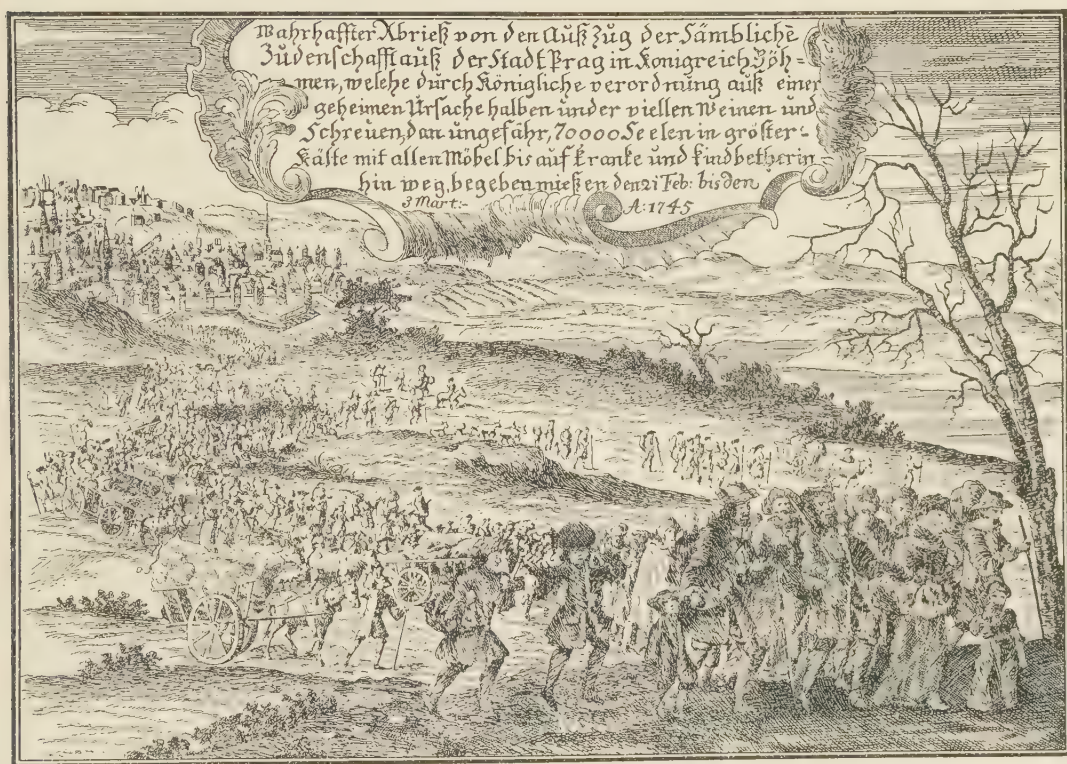 Wahrhaffter Abrieß von den Auß Zug der Sämbliche̅
Judenschafft auß der Stadt Prag in Königreich Böh-
men, welche durch Königliche verordnung auß einer
geheimen Ursache halben under viellen Weinen und
Schreüen, dan ungefähr, 70000 Seelen in gröster-
Kälte mit allen Möbel bis auf kranke und kindbetherin
hin weg, begeben mießen den 21 Feb: bis den
3 Mart:- A: 1745